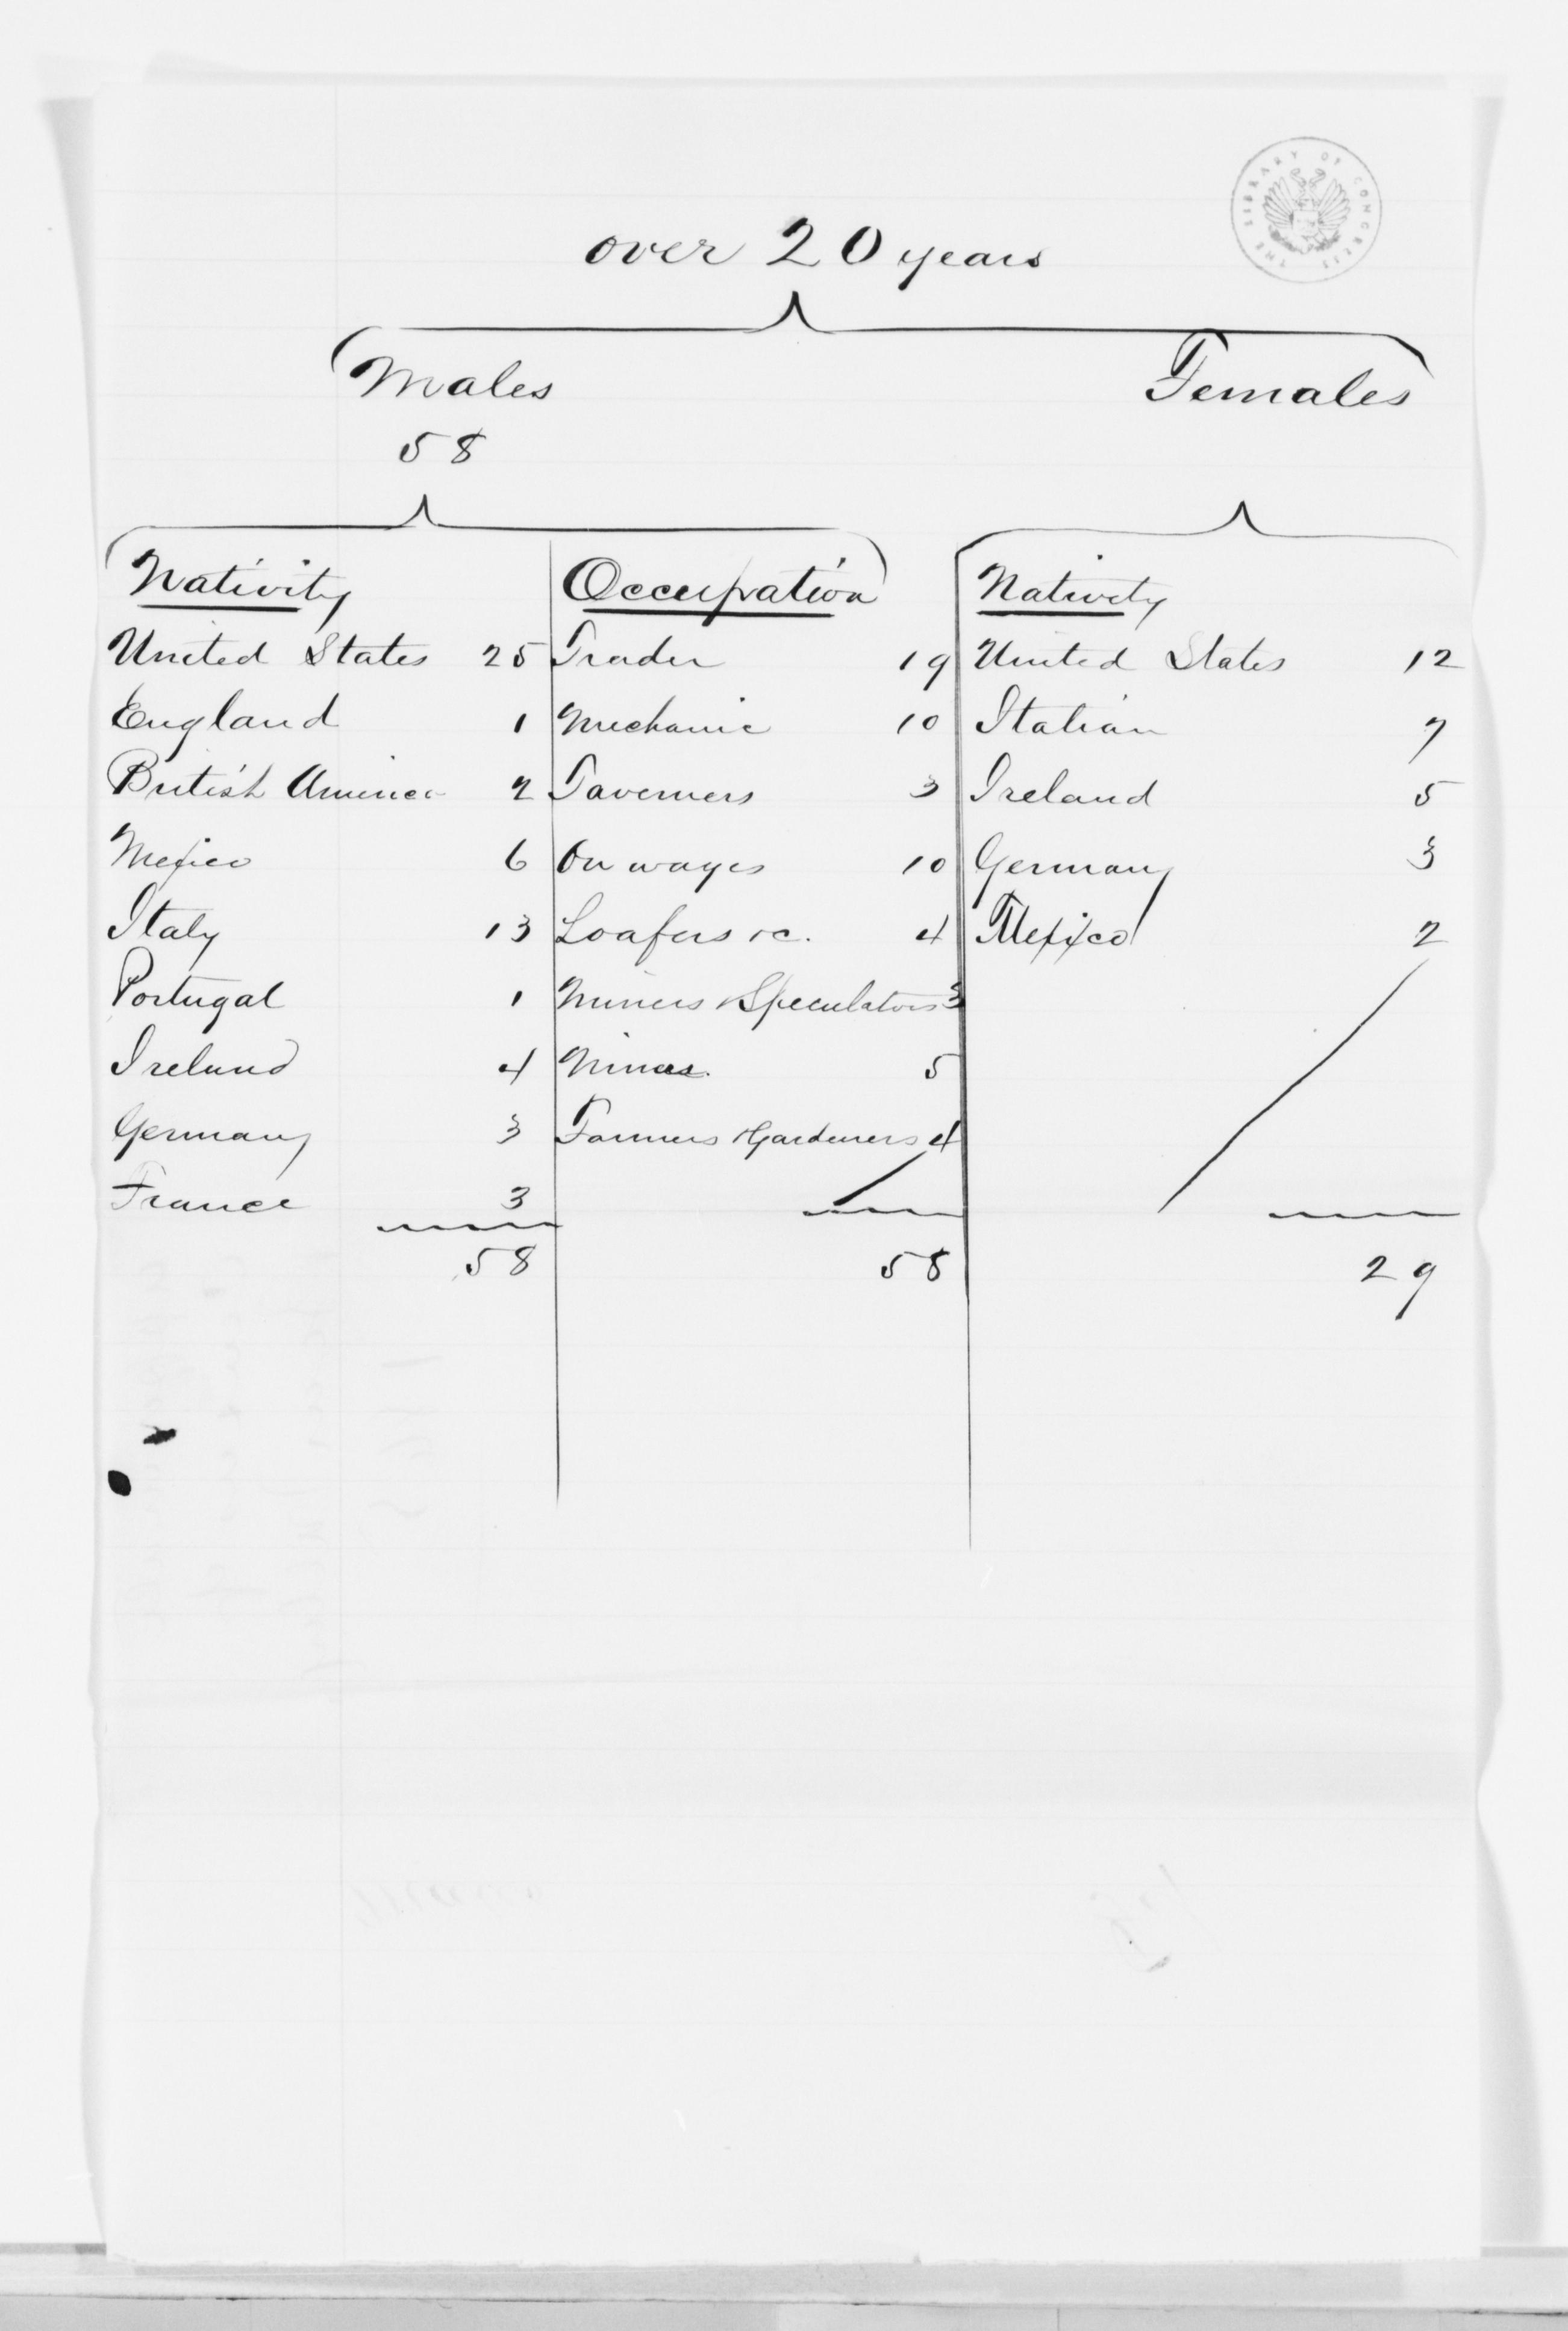 THE LIBRARY OF CONGRESS
over 20 years
Males Females
58
Nativity Occupation Nativity
United States 25 Trader 19 United States 12
England 1 Mechanic 10 Italian 7
British America 2 Taverners 3 Ireland 5
Mexico 6 On wages 10 Germany 3
Italy 13 Loafers &c. 4 Mexico 2
Portugal 1 Miners & Speculators 3
Ireland 4 Miners. 5
Germany 3 Farmers & Gardeners 4
France 3
58 58 29